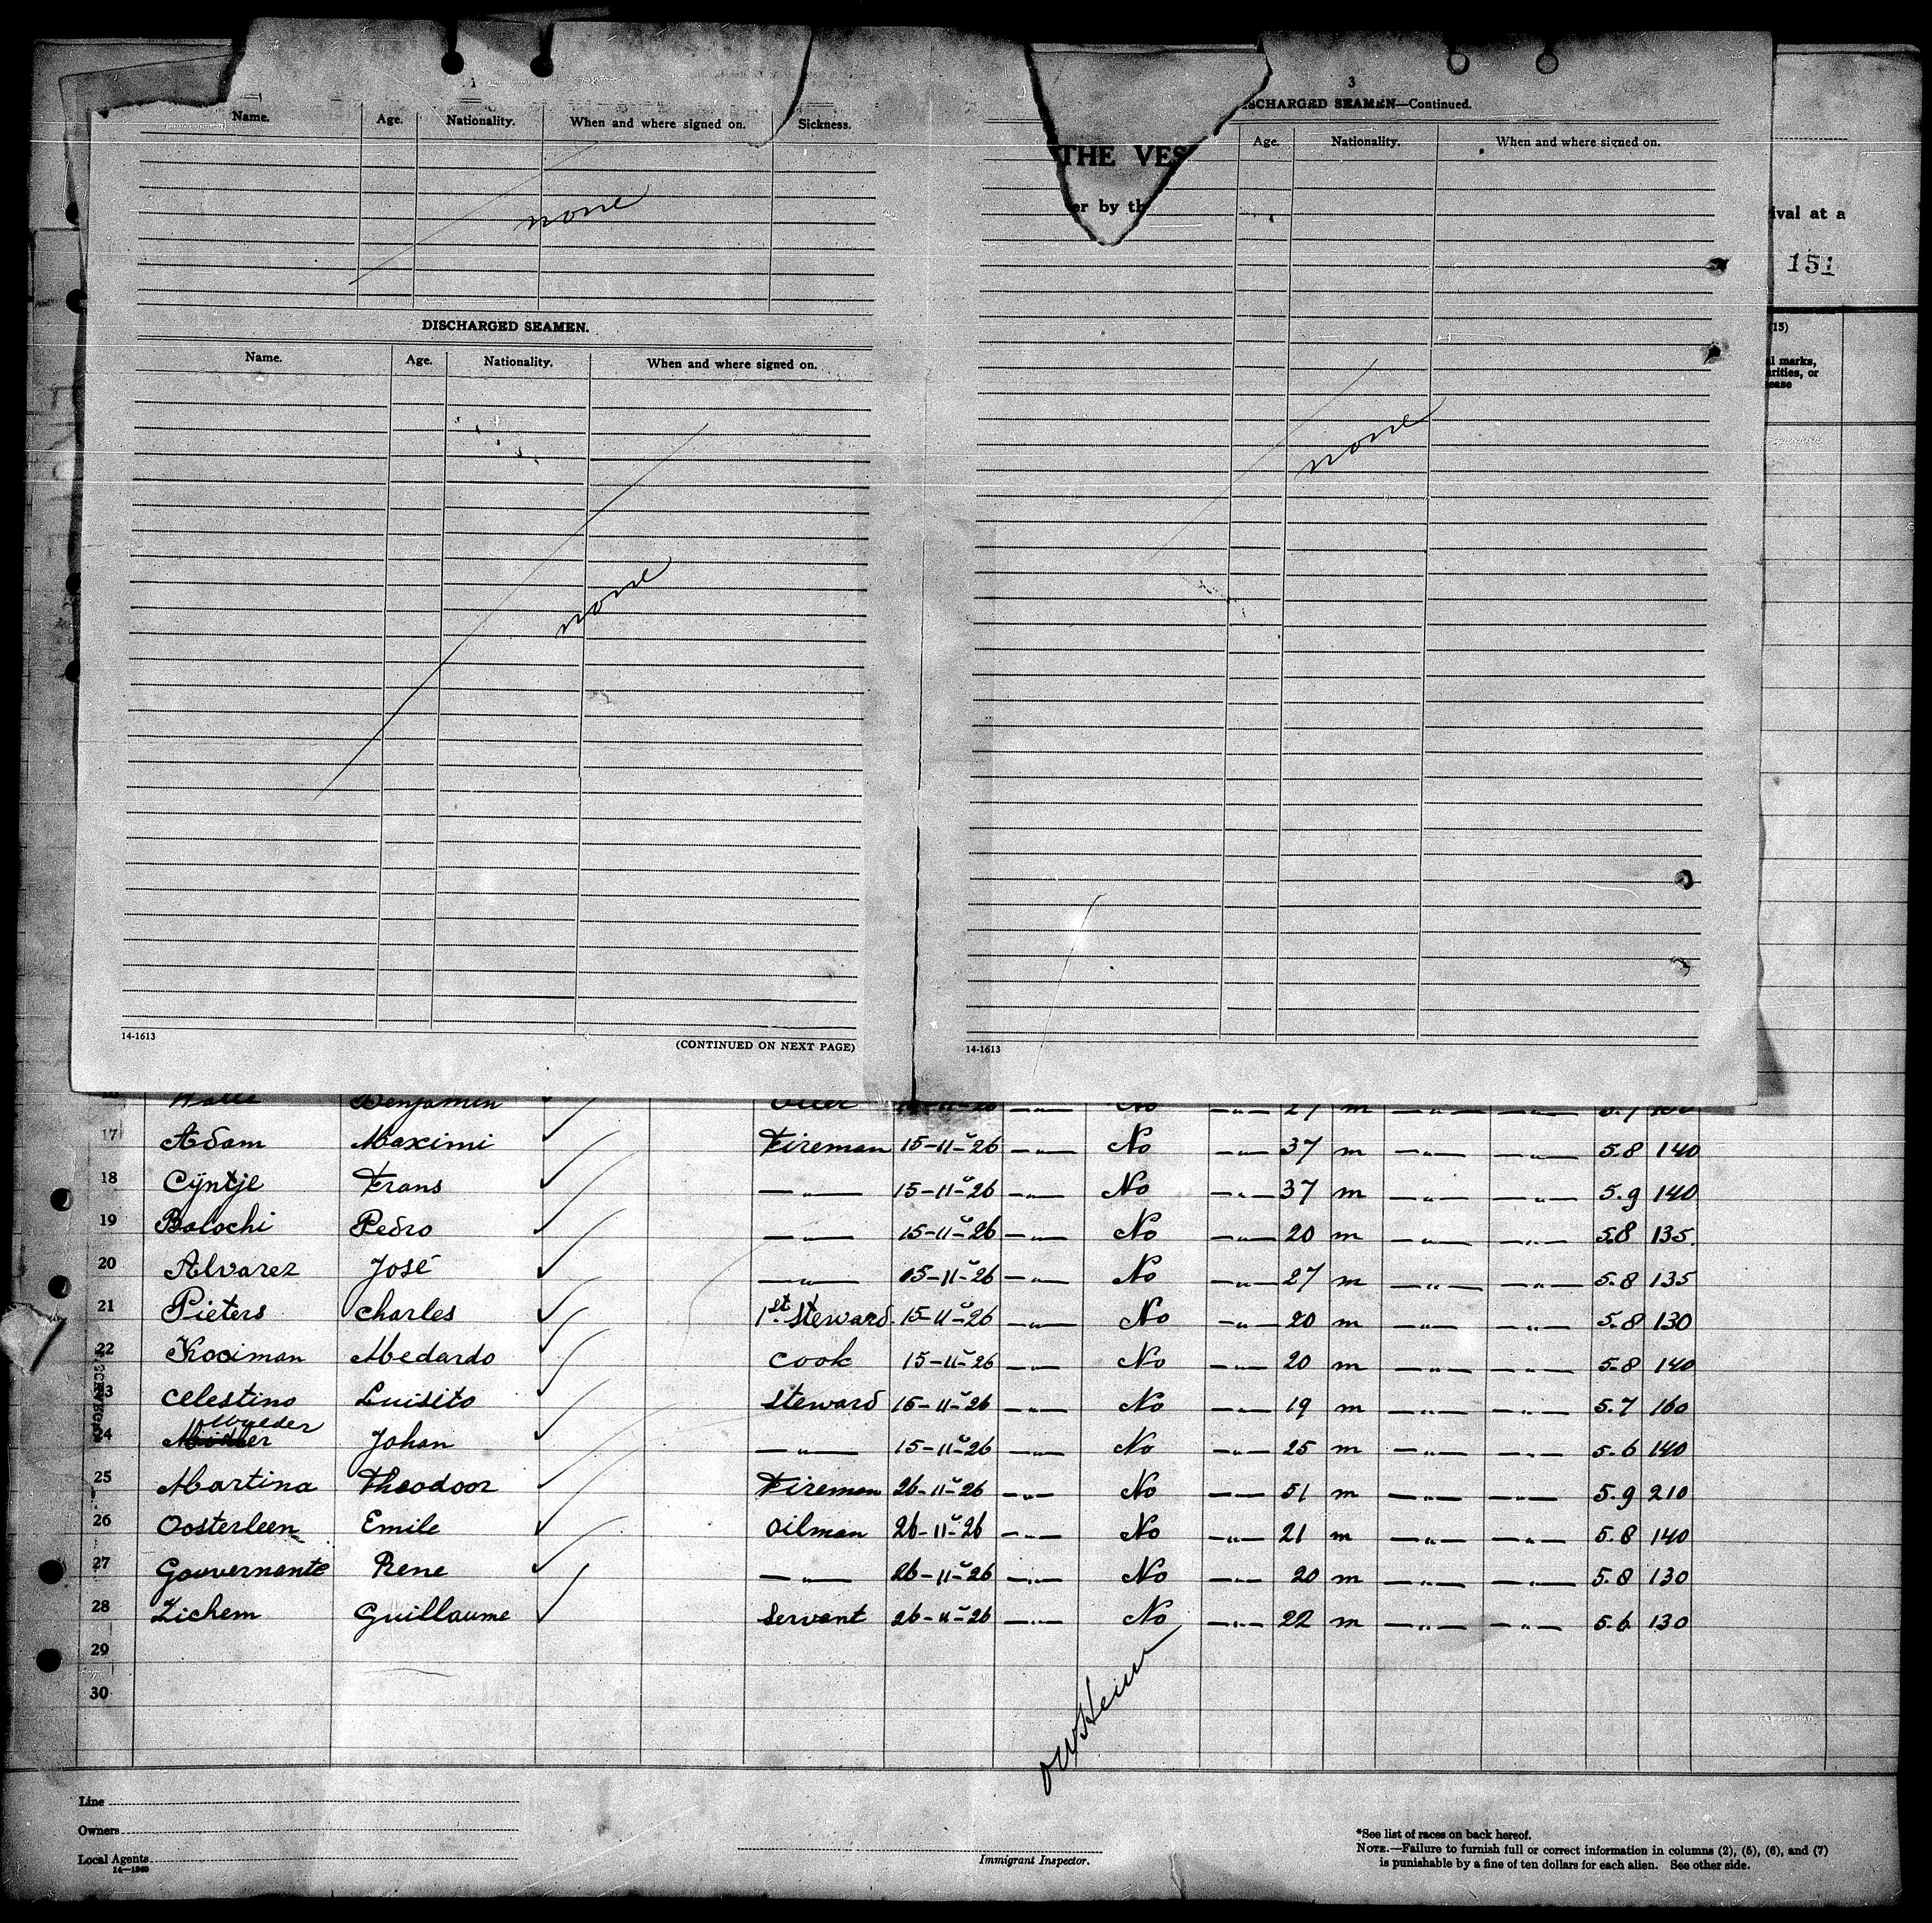 3
Name. Age. Nationality. When and where signed on. Sickness.
none
DISCHARGED SEAMEN.
Name. Age. Nationality. When and where signed on.
none
14-1613
(CONTINUED ON NEXT PAGE)
SCHARGED SEAMEN—Continued.
Age. Nationality. When and where signed on.
THE VES
er by th
none
14-1613
ival at a
151
(15)
l marks,
arities, or
ease
Benjamin
17 Adam Maximi Fireman 15-11-26 —"— No —"— 37 m —"— —"— 5.8 140
18 Cÿntje Frans —"— 15-11-26 —"— No —"— 37 m —"— —"— 5.9 140
19 Balochi Pedro —"— 15-11-26 —"— No —"— 20 m —"— —"— 5.8 135.
20 Alvarez José —"— 15-11-26 —"— No —"— 27 m —"— —"— 5.8 135
21 Pieters Charles 1st. Steward. 15-11-26 —"— No —"— 20 m —"— —"— 5.8 130
22 Kooiman Medardo Cook 15-11-26 —"— No —"— 20 m —"— —"— 5.8 140
23 Celestino Luisito Steward 15-11-26 —"— No —"— 19 m —"— —"— 5.7 160
24 Johan —"— 15-11-26 —"— No —"— 25 m —"— —"— 5.6 140
25 Martina Theodoor Fireman 26-11-26 —"— No —"— 51 m —"— —"— 5.9 210
26 Oosterleen Emile Oilman 26-11-26 —"— No —"— 21 m —"— —"— 5.8 140
27 Gouvernante Rene —"— 26-11-26 —"— No —"— 20 m —"— —"— 5.8 130
28 Zichem Guillaume Servant 26-11-26 —"— No —"— 22 m —"— —"— 5.6 130
29
30
Line
Owners
Local Agents
14—1540
Immigrant Inspector.
*See list of races on back hereof.
NOTE.—Failure to furnish full or correct information in columns (2), (5), (6), and (7)
is punishable by a fine of ten dollars for each alien. See other side.